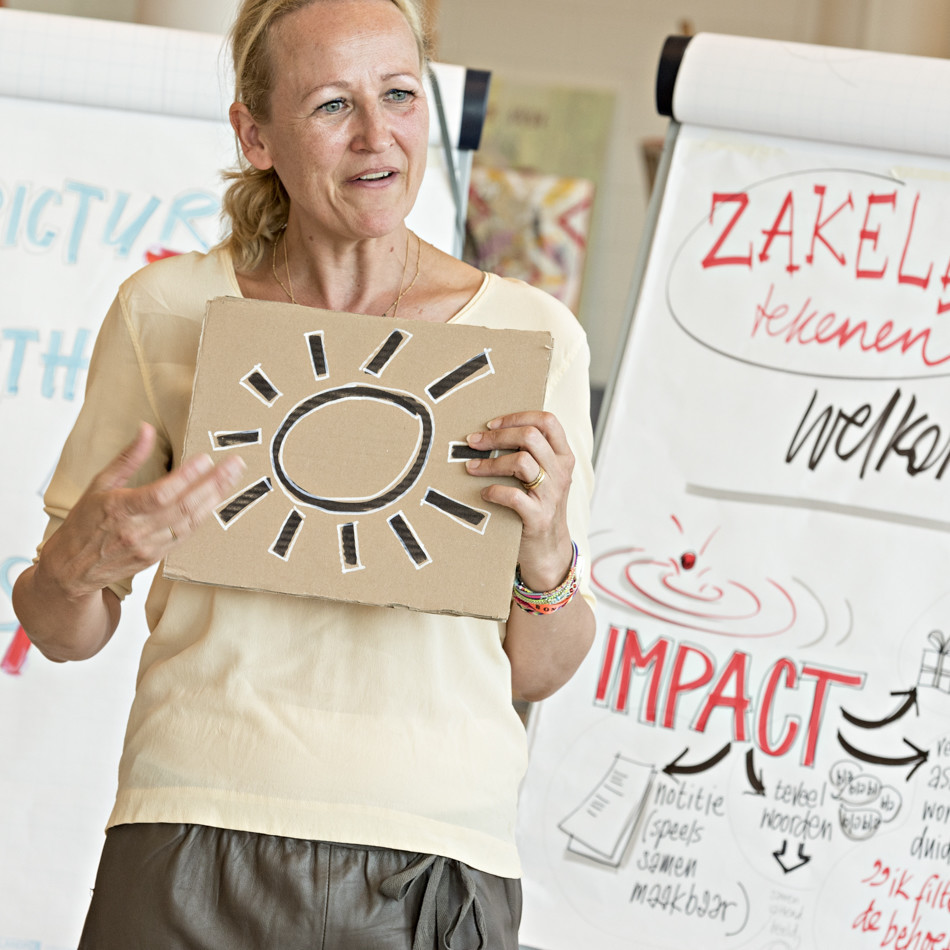 PICTUR
TH
ZAKEL
tekenen
Welko
IMPACT
notitie
(speels
samen
maakbaar)
teveel
woorden
bla bla
bla bla
wor
duid
ik filt
de behoe